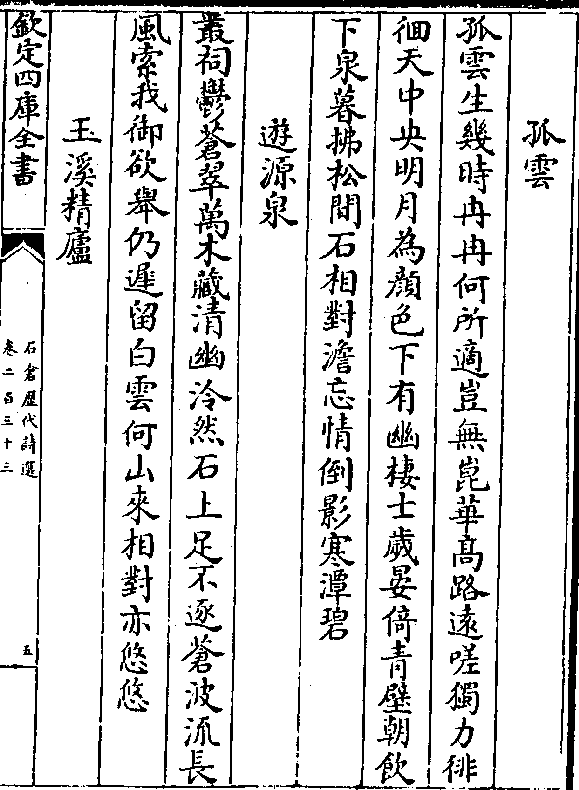 孤雲
孤雲生幾時冉冉何所適豈無崑華高路遠嗟獨力徘
徊天中央明月為顔色下有幽棲士歲晏倚青壁朝飲
下泉暮拂松間石相對澹忘情倒影寒潭碧
遊源泉
叢祠鬱蒼翠萬木藏清幽泠然石上足不逐蒼波流長
風索我御欲舉仍遲留白雲何山來相對亦悠悠
玉溪精廬
欽定四庫全書
石倉歷代詩選
卷二百三十三
五